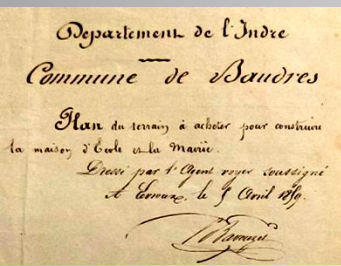 Departement de l'Indre
Commune de Baudres
Plan du terrain à acheter pour construire
la maison d'Ecole et la Mairie.
Dressé par l'Agent voyer soussigné
A le 5 Avril 1859.